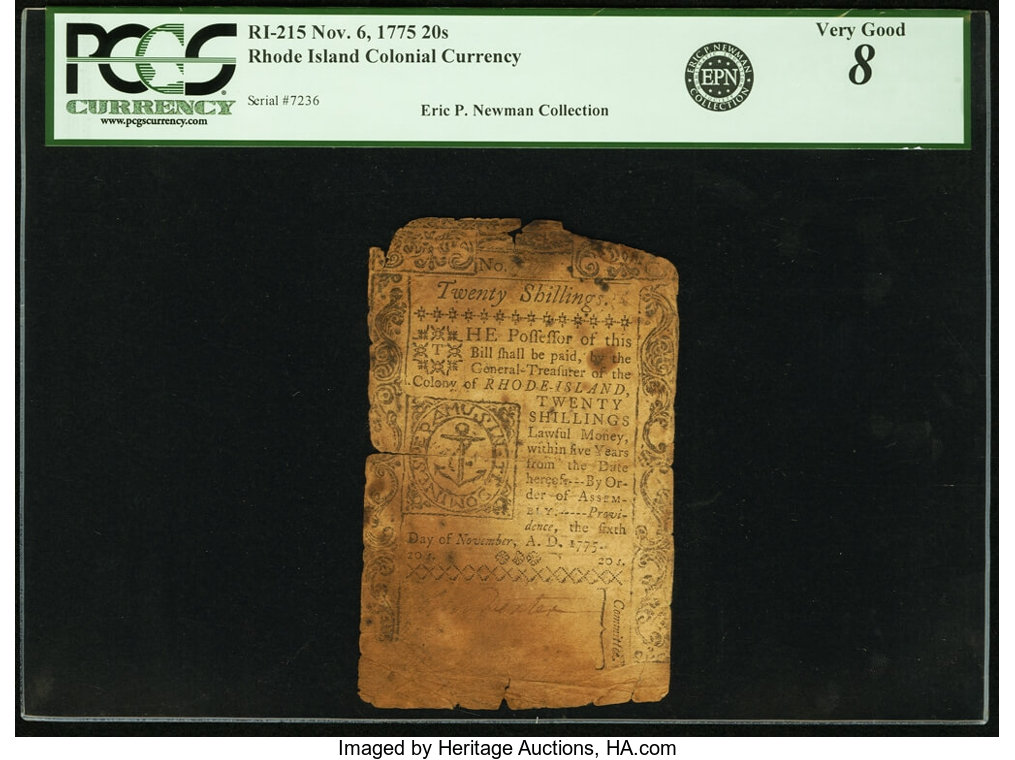 PCGS
CURRENCY
www.pcgscurrency.com
RI-215 Nov. 6, 1775 20s
Rhode Island Colonial Currency
Serial #7236
Eric P. Newman Collection
ERIC P. NEWMAN
EPN
COLLECTION
Very Good
8
No.
Twenty Shillings.
THE Poſſeſſor of this
Bill ſhall be paid, by the
General-Treaſurer of the
Colony of RHODE-ISLAND,
TWENTY
SHILLINGS
Lawful Money,
within five Years
from the Date
hereof.--By Or-
der of ASSEM-
BLY.-----Provi-
dence, the ſixth
Day of November, A. D. 1775.
IN TE DOMINE SPERAMUS
20 s. 20 s.
Committee.
Imaged by Heritage Auctions, HA.com